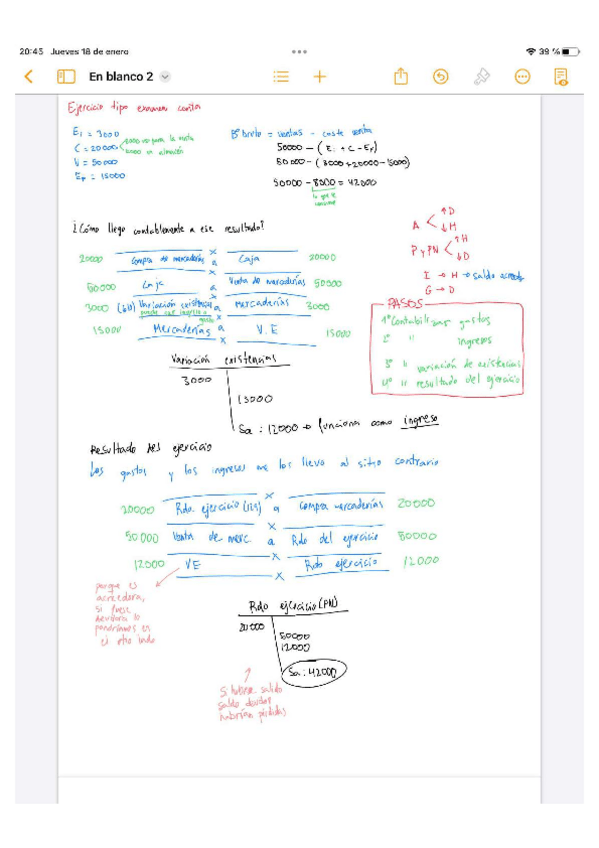 20:45 Jueves 18 de enero
39 %
En blanco 2
Ejercicio tipo examen conta
Ei = 3000
C = 20000
V = 50000
Ef = 15000
Bº bruto = ventas - coste venta
50000 - (Ei + C - Ef)
50000 - (3000 + 20000 - 15000)
50000 - 8000 = 42000
lo que se consume
¿Cómo llego contablemente a ese resultado?
A < ↑D ↓H
P y PN < ↑H ↓D
I → H → saldo acreed
G → D
20000 Compra de mercaderías a Caja 20000
50000 Caja a Venta de mercaderías 50000
3000 (610) Variación existencias a mercaderías 3000
puede ser ingreso o gasto
15000 Mercaderías a V.E 15000
PASOS
1º Contabilizar gastos
2º " ingresos
3º " variación de existencias
4º " resultado del ejercicio
Variación existencias
3000
15000
Sa: 12000 → funciona como ingreso
Resultado del ejercicio
Los gastos y los ingresos me los llevo al sitio contrario
20000 Rdo ejercicio (129) a compra mercaderías 20000
50000 Venta de merc a Rdo del ejercicio 50000
12000 VE Rdo ejercicio 12000
porque es
acreedora,
si fuese
deudora lo
pondríamos en
el otro lado
Rdo ejercicio (PN)
20000
50000
12000
Sa: 42000
Si hubiese salido
saldo deudor
habrían pérdidas